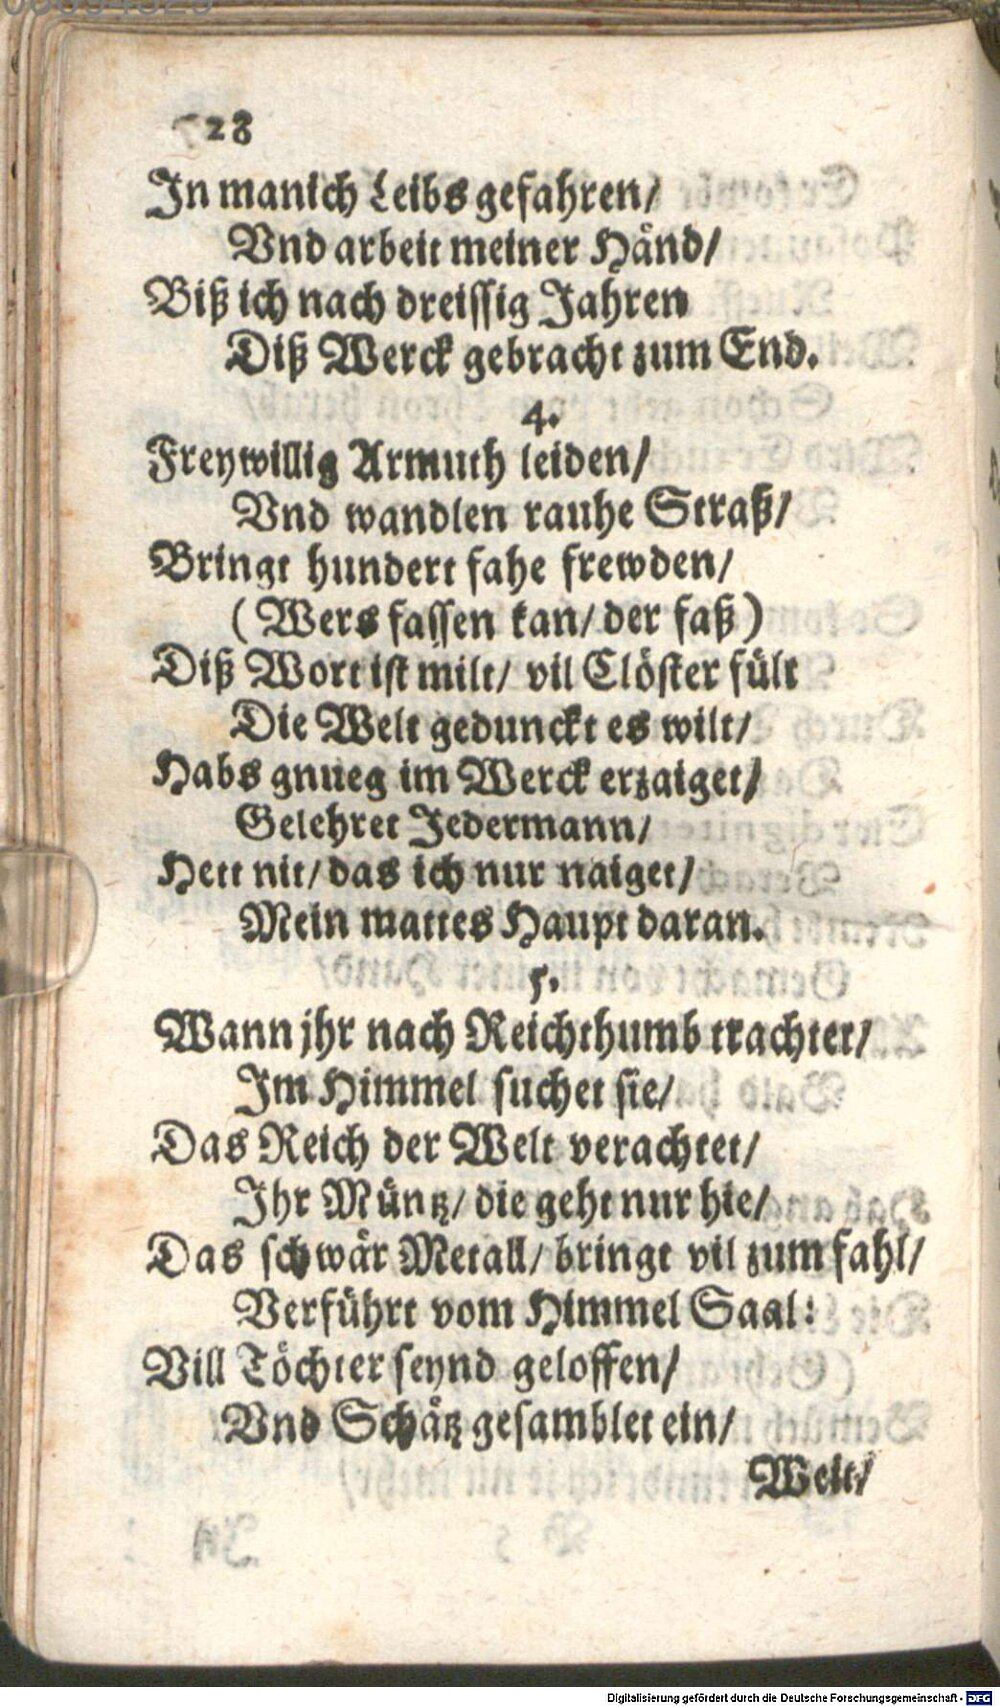 28
In manich Leibs gefahren/
Vnd arbeit meiner Händ/
Biß ich nach dreissig Jahren
Diß Werck gebracht zum End.
4.
Freywillig Armuth leiden/
Vnd wandlen rauhe Straß/
Bringt hundert fahe frewden/
(Wers fassen kan/ der faß)
Diß Wort ist milt/ vil Clöster fült
Die Welt gedunckt es wilt/
Habs gnueg im Werck erzaiget/
Gelehret Jedermann/
Hett nit/ das ich nur naiget/
Mein mattes Haupt daran.
5.
Wann jhr nach Reichthumb trachtet/
Im Himmel suchet sie/
Das Reich der Welt verachtet/
Ihr Müntz/ die geht nur hie/
Das schwär Metall/ bringt vil zum fahl/
Verführt vom Himmel Saal:
Vill Töchter seynd geloffen/
Vnd Schätz gesamblet ein/
Welt/
Digitalisierung gefördert durch die Deutsche Forschungsgemeinschaft - DFG